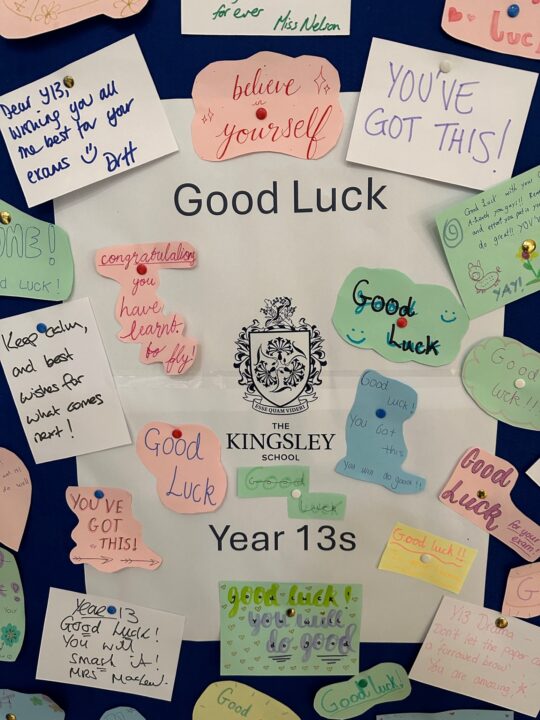 for ever Miss Nelson
Luc
Dear Y13,
Wishing you all
the best for your
exams
believe
in
yourself
YOU'VE
GOT THIS!
Good Luck
OME!
d Luck!
Good Luck with your
do great!!
YAY!
congratulations
you
have
learnt
to fly!
Good
Luck
Keep calm,
and best
wishes for
what comes
next!
ESSE QUAM VIDERI
THE
KINGSLEY
SCHOOL
Good
Luck!
You Got
this
You will do good!!
Good
luck!!
Good
Luck
Good
Luck
Good
Luck
for your
exam!
YOU'VE
GOT
THIS!
Year 13s
Good luck!!
Year 13
Good Luck!
You will
smash it!
good luck!
you will
do good
Y13 Drama
Don't let the paper
a furrowed brow
You are amazing
Good
Good Luck!